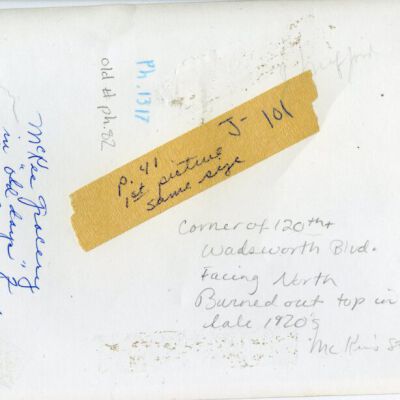 Ph.1317
old # ph.82
McKee Grocery
in "old days" of
p. 41
1st picture
same size
J- 101
Corner of 120th +
Wadsworth Blvd.
Facing North
Burned out top in
late 1920's